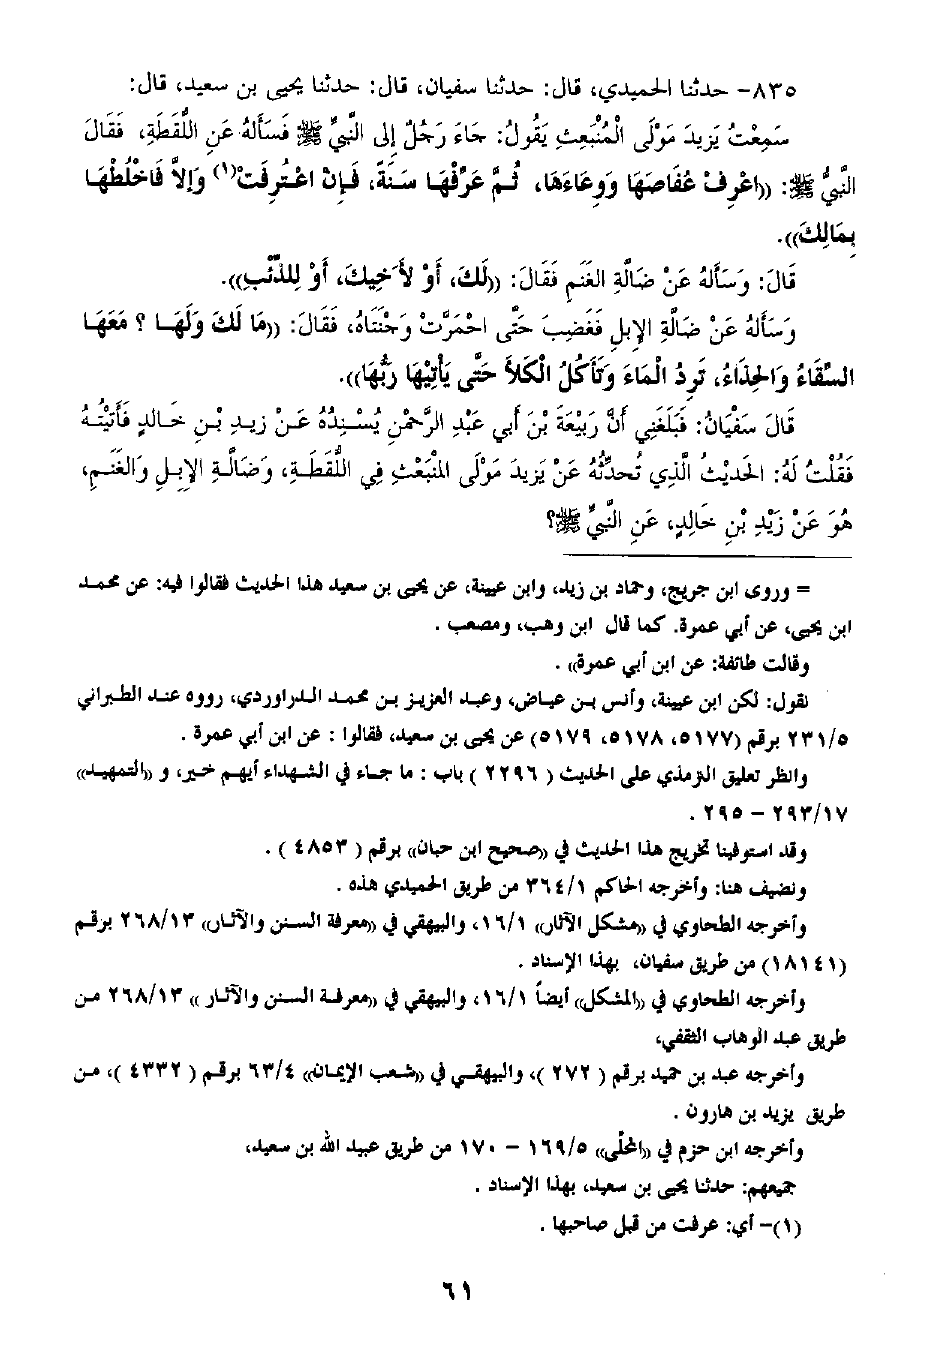 ٨٣٥- حدثنا الحميدي، قال: حدثنا سفيان، قال: حدثنا يحيى بن سعيد، قال:
سَمِعْتُ يَزِيدَ مَوْلَى الْمُنْبَعِثِ يَقُولُ: جَاءَ رَجُلٌ إلى النَّبِيِّ ﷺ فَسَأَلهُ عَنِ اللُّقَطَةِ، فَقَالَ
النَّبِيُّ ﷺ: ((اعْرِفْ عُفَاصَهَا وَوِعَاءَهَا، ثُمَّ عَرِّفْهَا سَنَةً، فَإِنْ اعْتُرِفَتْ(١) وَإِلاَّ فَاخْلُطْهَا
بِمَالِكَ)).
قَالَ: وَسَأَلهُ عَنْ ضَالَّةِ الغَنَمِ فَقَالَ: ((لَكَ، أَوْ لأَخِيكَ، أَوْ لِلذِّئْبِ)).
وَسَأَلهُ عَنْ ضَالَّةِ الإبلِ فَغَضِبَ حَتَّى احْمَرَّتْ وَجْنَتَاهُ، فَقَالَ: ((مَا لَكَ وَلَهَا ؟ مَعَهَا
السِّقَاءُ وَالحِذَاءُ، تَرِدُ الْمَاءَ وَتَأْكُلُ الْكَلأَ حَتَّى يَأْتِيْهَا رَبُّهَا)).
قَالَ سُفْيَانُ: فَبَلَغَنِي أَنَّ رَبِيْعَةَ بْنَ أَبِي عَبْدِ الرَّحْمنِ يُسْنِدُهُ عَنْ زيدِ بْنِ خَالدٍ فَأَتَيْتُهُ
فَقُلْتُ لَهُ: الحَديثُ الَّذِي تُحدِّثُهُ عَنْ يَزِيدَ مَوْلَى المْنْبَعْثِ فِي اللُّقَطَةِ، وَضَالَّةِ الإِبِلِ وَالغَنَمِ،
هُوَ عَنْ زَيْدِ بْنِ خَالِدٍ، عَنِ النَّبِيِّ ﷺ؟
= وروى ابن جريج، وحماد بن زيد، وابن عيينة، عن يحيى بن سعيد هذا الحديث فقالوا فيه: عن محمد
ابن يحيى، عن أبي عمرة. كما قال ابن وهب، ومصعب .
وقالت طائفة: عن ابن أبي عمرة)) .
نقول: لكن ابن عيينة، وأنس بن عياض، وعبد العزيز بن محمد الدراوردي، رووه عند الطبراني
٢٣١/٥ برقم (٥١٧٧، ٥١٧٨، ٥١٧٩) عن يحيى بن سعيد، فقالوا : عن ابن أبي عمرة .
وانظر تعليق الترمذي على الحديث ( ٢٢٩٦ ) باب : ما جاء في الشهداء أيهم خير، و ((التمهيد))
٢٩٣/١٧ – ٢٩٥ .
وقد استوفينا تخريج هذا الحديث في ((صحيح ابن حبان)) برقم ( ٤٨٥٣ ) .
ونضيف هنا: وأخرجه الحاكم ٣٦٤/١ من طريق الحميدي هذه .
وأخرجه الطحاوي في ((مشكل الآثار)) ١٦/١، والبيهقي في ((معرفة السنن والآثار)) ٢٦٨/١٣ برقم
(١٨١٤١) من طريق سفيان، بهذا الإسناد .
وأخرجه الطحاوي في ((المشكل)) أيضاً ١٦/١، والبيهقي في ((معرفة السنن والآثار )) ٢٦٨/١٣ من
طريق عبد الوهاب الثقفي،
وأخرجه عبد بن حميد برقم ( ٢٧٢ )، والبيهقي في ((شعب الإيمان)) ٦٣/٤ برقم ( ٤٣٣٢ )، من
طريق يزيد بن هارون .
وأخرجه ابن حزم في ((المحلّى)) ١٦٩/٥ – ١٧٠ من طريق عبيد الله بن سعيد،
جميعهم: حدثنا يحيى بن سعيد، بهذا الإسناد .
(١)– أي: عرفت من قبل صاحبها .
٦١